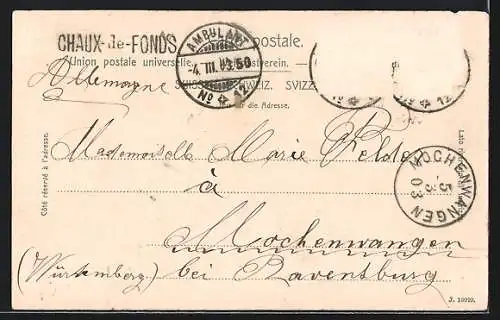 CHAUX-de-FONDS
AMBULANT
-4. III. 03. 50
No 12
postale.
Union postale universelle. tpostverein.
Allemagne
SUISSE. SCHWEIZ. SVIZZ
für die Adresse.
No 12
Mademoiselle Marie Felde
à
Mochenwangen
(Würtemberg) bei Ravensburg
MOCHENWANGEN
5
3
03
Côté réservé à l'adresse.
Lato
J. 10929.